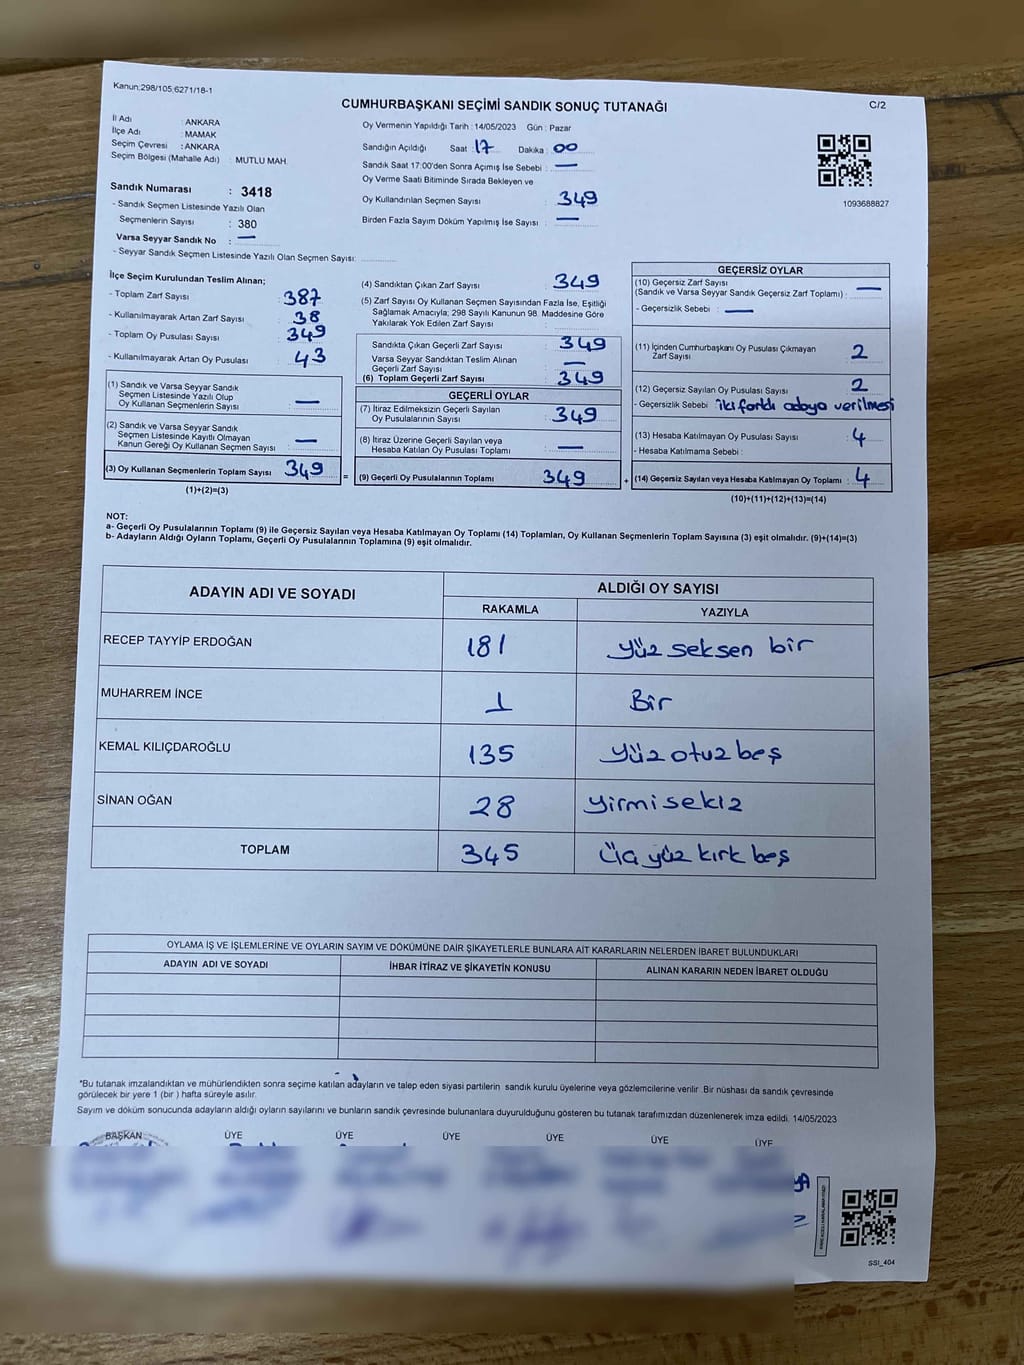 Kanun;298/105;6271/18-1
C/2
CUMHURBAŞKANI SEÇİMİ SANDIK SONUÇ TUTANAĞI
İl Adı : ANKARA
İlçe Adı : MAMAK
Seçim Çevresi : ANKARA
Seçim Bölgesi (Mahalle Adı) : MUTLU MAH.
Sandık Numarası : 3418
- Sandık Seçmen Listesinde Yazılı Olan
Seçmenlerin Sayısı : 380
Varsa Seyyar Sandık No : —
- Seyyar Sandık Seçmen Listesinde Yazılı Olan Seçmen Sayısı:
Oy Vermenin Yapıldığı Tarih : 14/05/2023 Gün : Pazar
Sandığın Açıldığı Saat : 17 Dakika : 00
Sandık Saat 17:00'den Sonra Açımış İse Sebebi : —
Oy Verme Saati Bitiminde Sırada Bekleyen ve
Oy Kullandırılan Seçmen Sayısı : 349
Birden Fazla Sayım Döküm Yapılmış İse Sayısı : —
1093688827
İlçe Seçim Kurulundan Teslim Alınan;
- Toplam Zarf Sayısı : 387
- Kullanılmayarak Artan Zarf Sayısı : 38
- Toplam Oy Pusulası Sayısı : 349
- Kullanılmayarak Artan Oy Pusulası : 43
(1) Sandık ve Varsa Seyyar Sandık
Seçmen Listesinde Yazılı Olup
Oy Kullanan Seçmenlerin Sayısı : —
(2) Sandık ve Varsa Seyyar Sandık
Seçmen Listesinde Kayıtlı Olmayan
Kanun Gereği Oy Kullanan Seçmen Sayısı : —
(3) Oy Kullanan Seçmenlerin Toplam Sayısı : 349
(1)+(2)=(3)
=
(4) Sandıktan Çıkan Zarf Sayısı : 349
(5) Zarf Sayısı Oy Kullanan Seçmen Sayısından Fazla İse, Eşitliği
Sağlamak Amacıyla; 298 Sayılı Kanunun 98. Maddesine Göre
Yakılarak Yok Edilen Zarf Sayısı :
Sandıkta Çıkan Geçerli Zarf Sayısı : 349
Varsa Seyyar Sandıktan Teslim Alınan
Geçerli Zarf Sayısı : —
(6) Toplam Geçerli Zarf Sayısı : 349
GEÇERLİ OYLAR
(7) İtiraz Edilmeksizin Geçerli Sayılan
Oy Pusulalarının Sayısı : 349
(8) İtiraz Üzerine Geçerli Sayılan veya
Hesaba Katılan Oy Pusulası Toplamı : —
(9) Geçerli Oy Pusulalarının Toplamı : 349
+
GEÇERSİZ OYLAR
(10) Geçersiz Zarf Sayısı
(Sandık ve Varsa Seyyar Sandık Geçersiz Zarf Toplamı) : —
- Geçersizlik Sebebi : —
(11) İçinden Cumhurbaşkanı Oy Pusulası Çıkmayan
Zarf Sayısı : 2
(12) Geçersiz Sayılan Oy Pusulası Sayısı : 2
- Geçersizlik Sebebi : iki farklı adaya verilmesi
(13) Hesaba Katılmayan Oy Pusulası Sayısı : 4
- Hesaba Katılmama Sebebi :
(14) Geçersiz Sayılan veya Hesaba Katılmayan Oy Toplamı : 4
(10)+(11)+(12)+(13)=(14)
NOT:
a- Geçerli Oy Pusulalarının Toplamı (9) ile Geçersiz Sayılan veya Hesaba Katılmayan Oy Toplamı (14) Toplamları, Oy Kullanan Seçmenlerin Toplam Sayısına (3) eşit olmalıdır. (9)+(14)=(3)
b- Adayların Aldığı Oyların Toplamı, Geçerli Oy Pusulalarının Toplamına (9) eşit olmalıdır.
ADAYIN ADI VE SOYADI ALDIĞI OY SAYISI
RAKAMLA YAZIYLA
RECEP TAYYİP ERDOĞAN 181 yüz seksen bir
MUHARREM İNCE 1 Bir
KEMAL KILIÇDAROĞLU 135 yüz otuz beş
SİNAN OĞAN 28 yirmi sekiz
TOPLAM 345 üç yüz kırk beş
OYLAMA İŞ VE İŞLEMLERİNE VE OYLARIN SAYIM VE DÖKÜMÜNE DAİR ŞİKAYETLERLE BUNLARA AİT KARARLARIN NELERDEN İBARET BULUNDUKLARI
ADAYIN ADI VE SOYADI İHBAR İTİRAZ VE ŞİKAYETİN KONUSU ALINAN KARARIN NEDEN İBARET OLDUĞU
*Bu tutanak imzalandıktan ve mühürlendikten sonra seçime katılan adayların ve talep eden siyasi partilerin sandık kurulu üyelerine veya gözlemcilerine verilir. Bir nüshası da sandık çevresinde
görülecek bir yere 1 (bir ) hafta süreyle asılır.
Sayım ve döküm sonucunda adayların aldığı oyların sayılarını ve bunların sandık çevresinde bulunanlara duyurulduğunu gösteren bu tutanak tarafımızdan düzenlenerek imza edildi. 14/05/2023
BAŞKAN ÜYE ÜYE ÜYE ÜYE ÜYE ÜYE
SSI_404